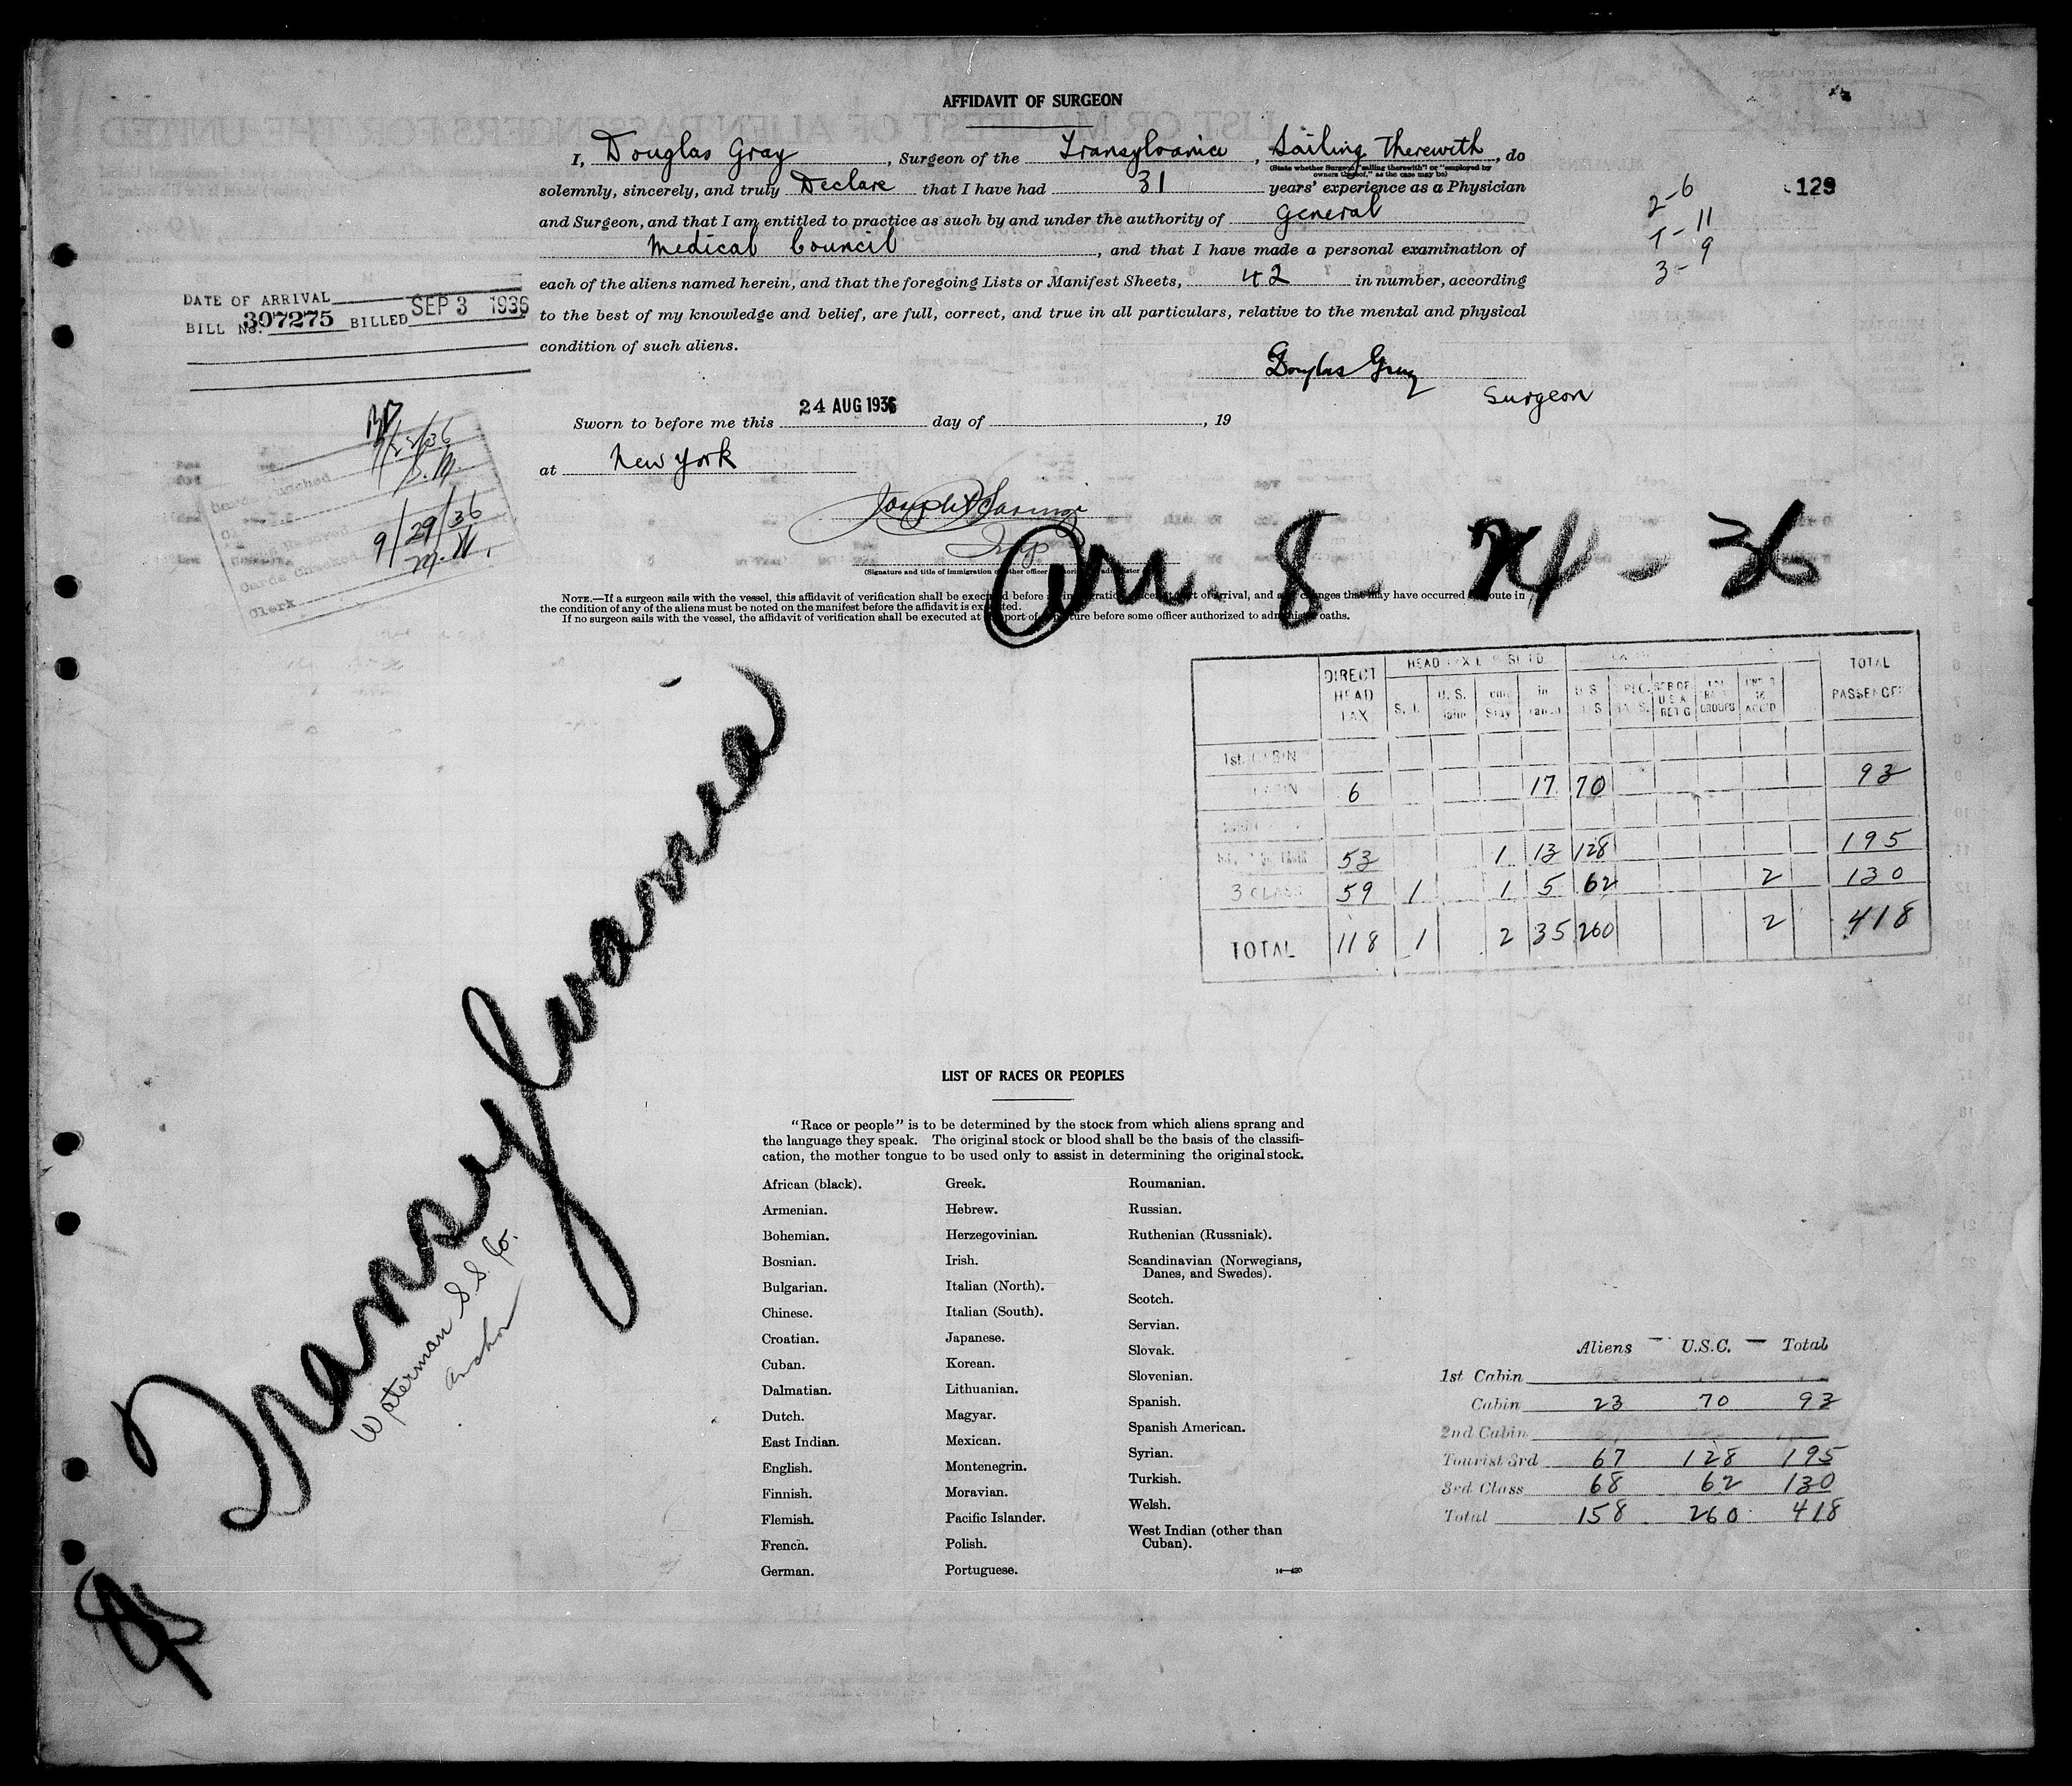 AFFIDAVIT OF SURGEON
I, Douglas Gray, Surgeon of the Transylvania, Sailing Therewith, do
(State whether Surgeon "sailing therewith" or "employed by
owners thereof," as the case may be)
solemnly, sincerely, and truly Declare that I have had 31 years' experience as a Physician
and Surgeon, and that I am entitled to practice as such by and under the authority of General
Medical Council, and that I have made a personal examination of
each of the aliens named herein, and that the foregoing Lists or Manifest Sheets, 42 in number, according
to the best of my knowledge and belief, are full, correct, and true in all particulars, relative to the mental and physical
condition of such aliens.
129
2-6
1-11
3-9
DATE OF ARRIVAL
BILL No. 307275 BILLED SEP 3 1936
Douglas Gray
Surgeon
Sworn to before me this 24 AUG 1936 day of , 19
at New York
Cards Punched
9/29/36
Cards Checked
Clerk
8-24-36
NOTE.—If a surgeon sails with the vessel, this affidavit of verification shall be executed before immigration of arrival, and changes that may have occurred route in
the condition of any of the aliens must be noted on the manifest before the affidavit is executed.
If no surgeon sails with the vessel, the affidavit of verification shall be executed at port of before some officer authorized to administer oaths.
DIRECT HEAD TAX S. I. U. S. in TOTAL PASSENGERS
1st CABIN
CABIN 6 17 70 93
53 1 13 128 195
3 CLASS 59 1 1 5 62 2 130
TOTAL 118 1 2 35 260 2 418
Transylvania
Waterman S.S. Co.
Anchor
LIST OF RACES OR PEOPLES
"Race or people" is to be determined by the stock from which aliens sprang and
the language they speak. The original stock or blood shall be the basis of the classifi-
cation, the mother tongue to be used only to assist in determining the original stock.
African (black).
Armenian.
Bohemian.
Bosnian.
Bulgarian.
Chinese.
Croatian.
Cuban.
Dalmatian.
Dutch.
East Indian.
English.
Finnish.
Flemish.
French.
German.
Greek.
Hebrew.
Herzegovinian.
Irish.
Italian (North).
Italian (South).
Japanese.
Korean.
Lithuanian.
Magyar.
Mexican.
Montenegrin.
Moravian.
Pacific Islander.
Polish.
Portuguese.
Roumanian.
Russian.
Ruthenian (Russniak).
Scandinavian (Norwegians,
Danes, and Swedes).
Scotch.
Servian.
Slovak.
Slovenian.
Spanish.
Spanish American.
Syrian.
Turkish.
Welsh.
West Indian (other than
Cuban).
14—420
Aliens — U.S.C. — Total
1st Cabin
Cabin 23 70 93
2nd Cabin
Tourist 3rd 67 128 195
3rd Class 68 62 130
Total 158 260 418